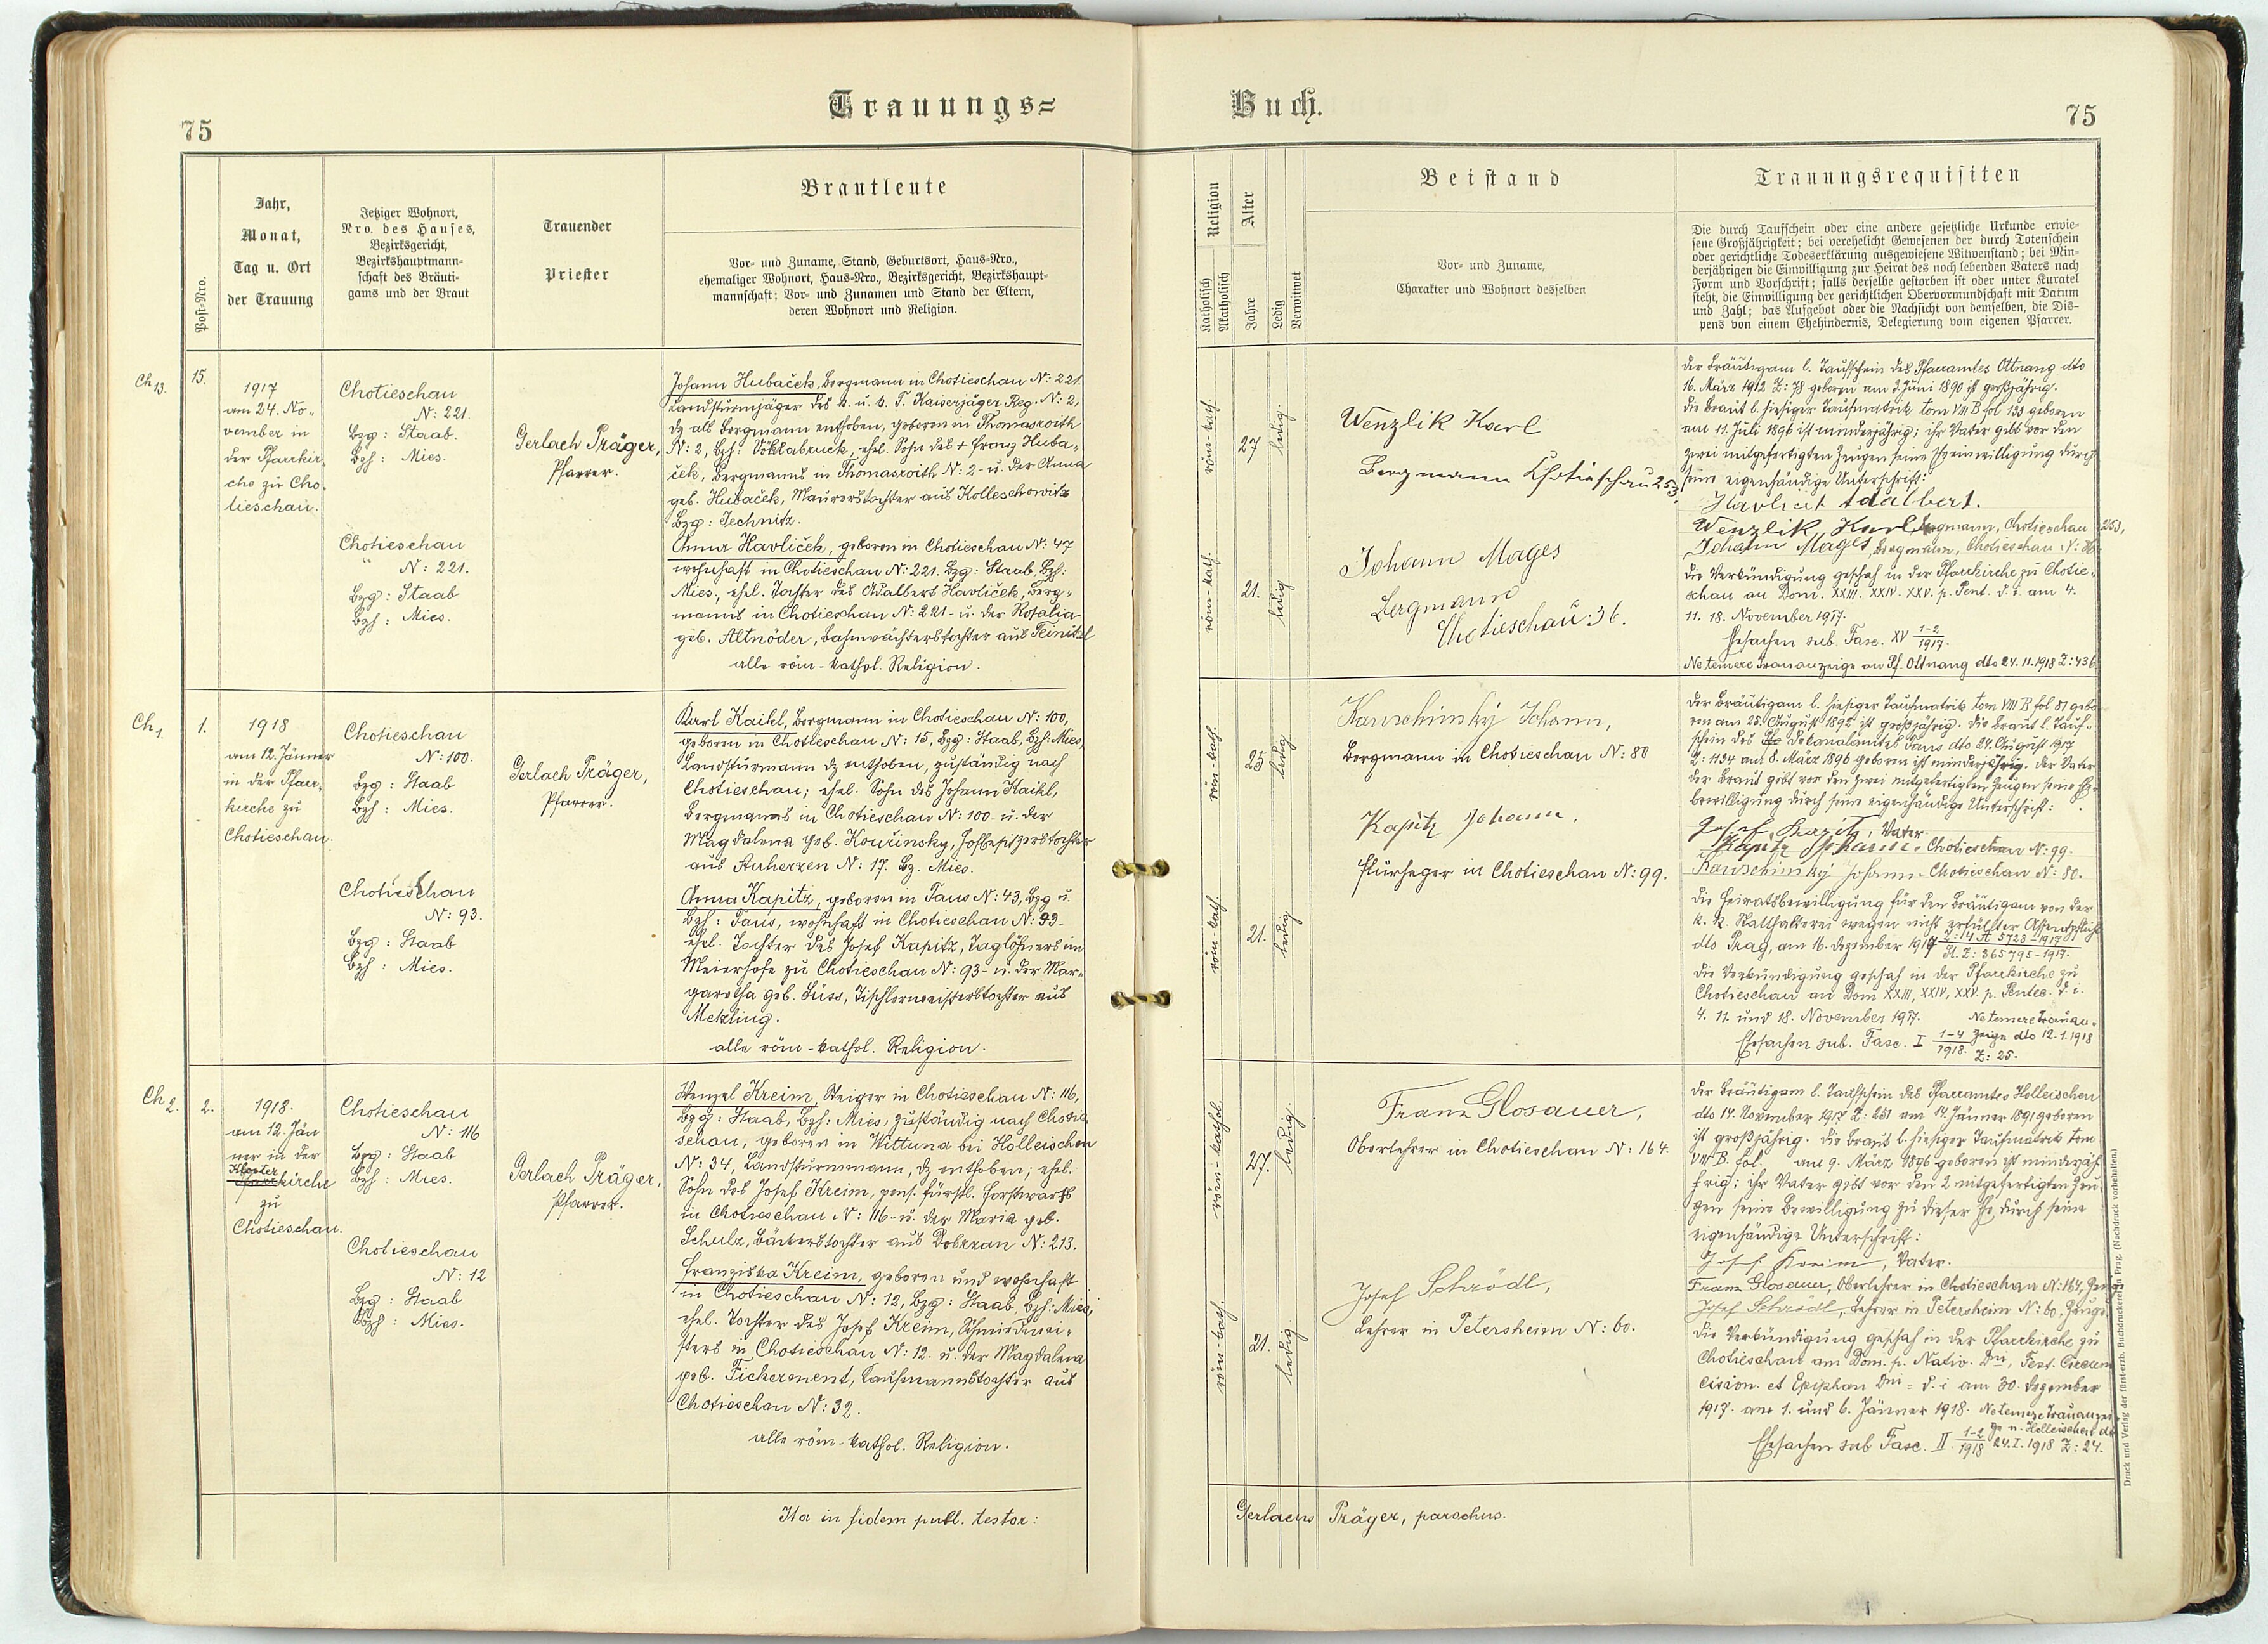 Trauungs=
Buch.
75
75
Post-Nro.
Jahr,
Monat,
Tag u. Ort
der Trauung
Jetziger Wohnort,
Nro. des Hauses,
Bezirksgericht,
Bezirkshauptmann-
schaft des Bräuti-
gams und der Braut
Trauender
Priester
Brautleute
Vor- und Zuname, Stand, Geburtsort, Haus-Nro.,
ehemaliger Wohnort, Haus-Nro., Bezirksgericht, Bezirkshaupt-
mannschaft; Vor- und Zunamen und Stand der Eltern,
deren Wohnort und Religion.
Religion
Katholisch
Akatholisch
Alter
Jahre
Ledig
Verwitwet
Beistand
Vor- und Zuname,
Charakter und Wohnort desselben
Trauungsrequisiten
Die durch Taufschein oder eine andere gesetzliche Urkunde erwie-
sene Großjährigkeit; bei verehelicht Gewesenen der durch Totenschein
oder gerichtliche Todeserklärung ausgewiesene Witwenstand; bei Min-
derjährigen die Einwilligung zur Heirat des noch lebenden Vaters nach
Form und Vorschrift; falls derselbe gestorben ist oder unter Kuratel
steht, die Einwilligung der gerichtlichen Obervormundschaft mit Datum
und Zahl; das Aufgebot oder die Nachsicht von demselben, die Dis-
pens von einem Ehehindernis, Delegierung vom eigenen Pfarrer.
Ch 13.
15.
1917
am 24. No-
vember in
der Pfarrkir-
che zu Cho-
tieschau.
Chotieschau
N: 221.
Bzg: Staab.
Bzh: Mies.
Chotieschau
N: 221.
Bzg: Staab
Bzh: Mies.
Gerlach Präger,
Pfarrer.
Johann Hubaček, Bergmann in Chotieschau N: 221.
Landsturmjäger des k. u. k. T. Kaiserjäger Reg. N: 2,
dz als Bergmann enthoben, geboren in Thomasroith
N: 2, Bzh: Vöklabruck, ehel. Sohn des + Franz Huba-
ček, Bergmanns in Thomasroith N: 2 u. der Anna
geb. Hubaček, Maurerstochter aus Kolleschowitz
Bzg: Jechnitz.
Anna Havliček, geboren in Chotieschau N: 47
wohnhaft in Chotieschau N: 221. Bzg: Staab, Bzh:
Mies, ehel. Tochter des Adalbert Havliček, Berg-
manns in Chotieschau N: 221 u. der Rosalia
geb. Altnöder, Bahnwächterstochter aus Teinitzl
alle röm-kathol. Religion.
röm-kath.
27
ledig.
röm-kath.
21.
ledig
Wenzlik Karl
Bergmann Chotieschau 253.
Johann Mages
Bergmann
Chotieschau: 36.
Der Bräutigam l. Taufschein des Pfarramtes Ottnang dto
16. März 1912 Z: 78 geboren am 2. Juni 1890 ist großjährig.
Die Braut l. hiesiger Taufmatrik tom VIII B fol 133 geboren
am 11. Juli 1896 ist minderjährig; ihr Vater gibt vor den
zwei mitgefertigten Zeugen seine Eheeinwilligung durch
seine eigenhändige Unterschrift:
Havlicet Adalbert.
Wenzlik Karl Bergmann, Chotieschau 253,
Johann Mages, Bergmann, Chotieschau N: 36
Die Verkündigung geschah in der Pfarrkirche zu Chotie-
schau an Dom. XXIII. XXIV. XXV. p. Pent. d. i. am 4.
11. 18. November 1917.
Ehesachen sub. Fasc. XV 1-2/1917.
Ne temere Trauanzeige an Pf. Ottnang dto 24.11.1918 Z: 436
Ch 1.
1.
1918
am 12. Jänner
in der Pfarr-
kirche zu
Chotieschau.
Chotieschau
N: 100.
Bzg: Staab
Bzh: Mies.
Chotieschau
N: 93.
Bzg: Staab
Bzh: Mies.
Gerlach Präger,
Pfarrer.
Karl Kaikl, Bergmann in Chotieschau N: 100,
geboren in Chotieschau N: 15, Bzg: Staab, Bzh: Mies,
Landsturmmann dz enthoben, zuständig nach
Chotieschau; ehel. Sohn des Johann Kaikl,
Bergmanns in Chotieschau N: 100 u. der
Magdalena geb. Kouřinsky, Hofbesitzerstochter
aus Auherzen N: 17. Bz. Mies.
Anna Kapitz, geboren in Taus N: 43, Bzg u.
Bzh: Taus, wohnhaft in Chotieschau N: 93
ehel. Tochter des Josef Kapitz, Taglöhners im
Meierhofe zu Chotieschau N: 93 u. der Mar-
garetha geb. Süss, Tischlermeisterstochter aus
Metzling.
alle röm-kathol. Religion.
röm-kath.
25
ledig
röm-kath.
21.
ledig
Kauschinsky Johann,
Bergmann in Chotieschau N: 80
Kapitz Johann,
Flurheger in Chotieschau N: 99.
Der Bräutigam l. hiesiger Taufmatrik tom VIII B fol 81 gebo
ren am 25. August 1892 ist großjährig. Die Braut l. Tauf-
schein des Dekanalamtes Taus dto 24. August 1917
Z: 1134 am 8. März 1896 geboren ist minderjährig. Der Vater
der Braut gibt vor den zwei mitgefertigten Zeugen seine Ehe-
bewilligung durch seine eigenhändige Unterschrift:
Josef Kapitz, Vater
Kapitz Johann. Chotieschau N: 99.
Kauschinsky Johann Chotieschau N: 80.
Die Heiratsbewilligung für den Bräutigam von der
k. k. Statthalterei wegen nicht erfüllter Assentpflicht
dto Prag, am 16. Dezember 1917 Z: 14 A 5728-1917
St. Z: 365795-1917.
Die Verkündigung geschah in der Pfarrkirche zu
Chotieschau an Dom XXIII, XXIV, XXV. p. Pentec. d. i.
4. 11. und 18. November 1917. Ne temere Trauan-
Ehesachen sub. Fasc. I 1-4/1918. zeige dto 12.1.1918
Z: 25.
Ch 2.
2.
1918.
am 12. Jän
ner in der
Kloster
Pfarrkirche
zu
Chotieschau.
Chotieschau
N: 116
Bzg: Staab
Bzh: Mies.
Chotieschau
N: 12
Bzg: Staab
Bzh: Mies.
Gerlach Präger,
Pfarrer.
Wenzel Kreim, Steiger in Chotieschau N: 116,
Bzg: Staab, Bzh: Mies, zuständig nach Chotie
schau, geboren in Wittuna bei Holleischen
N: 34, Landsturmmann, dz enthoben; ehel.
Sohn des Josef Kreim, pens. fürstl. Forstwarts
in Chotieschau N: 116 u. der Maria geb.
Schulz, Bäckerstochter aus Dobrzan N: 213.
Franziska Kreim, geboren und wohnhaft
in Chotieschau N: 12, Bzg: Staab, Bzh: Mies,
ehel. Tochter des Josef Kreim, Schmiedmei-
sters in Chotieschau N: 12 u. der Magdalena
geb. Fickerment, Kaufmannstochter aus
Chotieschau N: 32.
alle röm-kathol. Religion.
röm-kathol.
27.
ledig.
röm-kath.
21.
ledig.
Franz Glosauer,
Oberlehrer in Chotieschau N: 164.
Josef Schrödl,
Lehrer in Petersheim N: 60.
Der Bräutigam l. Taufschein des Pfarramtes Holleischen
dto 14. November 1917 Z: 251 am 14. Jänner 1891 geboren
ist großjährig. Die Braut l. hiesiger Taufmatrik tom
VIII B. fol. am 9. März 1896 geboren ist minderjäh
rig; ihr Vater gibt vor den 2 mitgefertigten Zeu
gen seine Bewilligung zu dieser Ehe durch seine
eigenhändige Unterschrift:
Josef Kreim, Vater.
Franz Glosauer, Oberlehrer in Chotieschau N: 164, Zeuge
Josef Schrödl, Lehrer in Petersheim N: 60, Zeuge.
Die Verkündigung geschah in der Pfarrkirche zu
Chotieschau am Dom. p. Nativ. Dni, Fest. Circum
cision. et Epiphan Dni = d. i am 30. Dezember
1917. am 1. und 6. Jänner 1918. Ne temere Trauanzei
ge n. Holleischen dto
Ehesachen sub Fasc. II 1-2/1918 24.I.1918 Z: 24.
Ita in fidem publ. testor:
Gerlacus Präger, parochus.
Druck und Verlag der fürsterzb. Buchdruckerei in Prag. (Nachdruck vorbehalten.)